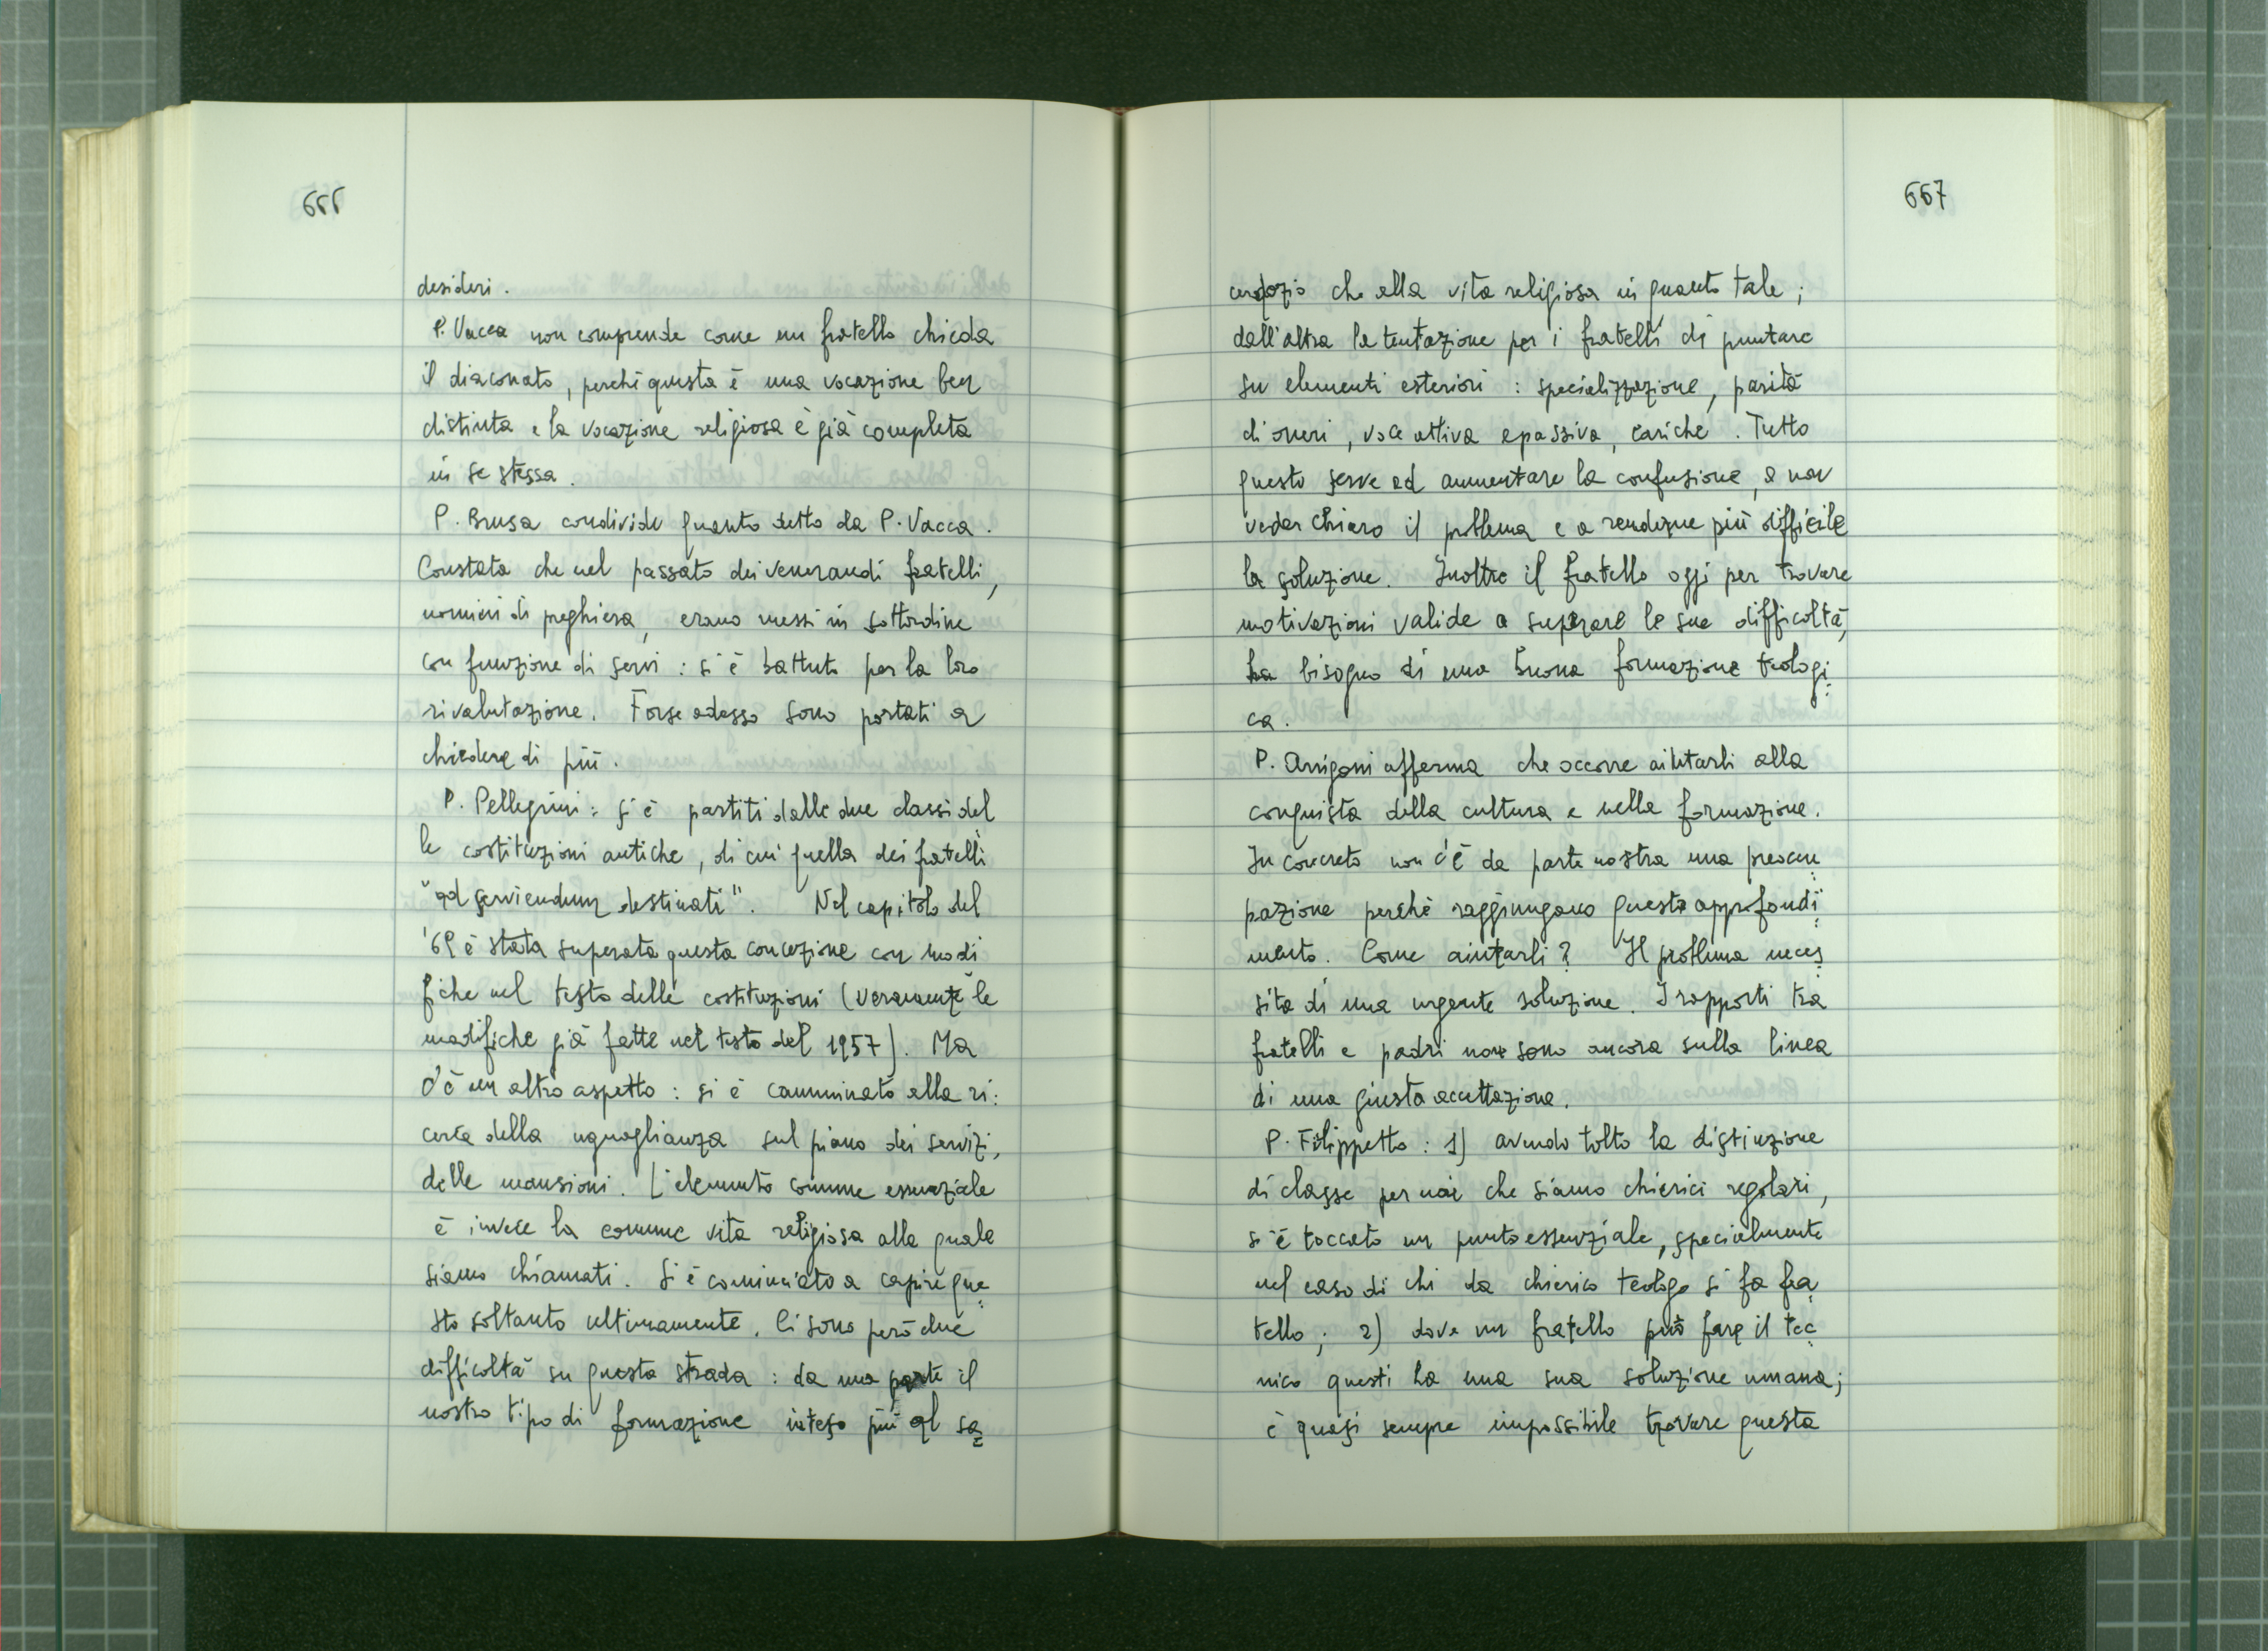 666
desideri.
P. Vacca non comprende come un fratello chieda
il diaconato, perché questa è una vocazione ben
distinta e la vocazione religiosa è già completa
in se stessa.
P. Brusa condivide quanto detto da P. Vacca.
Constata che nel passato dei venerandi fratelli,
uomini di preghiera, erano messi in sottordine
con funzione di servi: si è battuto per la loro
rivalutazione. Forse adesso sono portati a
chiedere di più.
P. Pellegrini: si è partiti dalle due classi del
le costituzioni antiche, di cui quella dei fratelli
"ad serviendum destinati". Nel capitolo del
'69 è stata superata questa concezione con modi
fiche nel testo delle costituzioni (veramente le
modifiche già fatte nel testo del 1957). Ma
c'è un altro aspetto: si è camminato alla ri:
cerca della uguaglianza sul piano dei servizi,
delle mansioni. L'elemento comune essenziale
è invece la comune vita religiosa alla quale
siamo chiamati. Si è cominciato a capire que=
sto soltanto ultimamente. Ci sono però due
difficoltà su questa strada: da una parte il
nostro tipo di formazione inteso più al sa=
667
cerdozio che alla vita religiosa in quanto tale;
dall'altra la tentazione per i fratelli di puntare
su elementi esteriori: specializzazione, parità
di oneri, voce attiva e passiva, cariche. Tutto
questo serve ad aumentare la confusione, a non
veder chiaro il problema e a renderne più difficile
la soluzione. Inoltre il fratello oggi per trovare
motivazioni valide a superare le sue difficoltà,
ha bisogno di una buona formazione teologi=
ca.
P. Arrigoni afferma che occorre aiutarli alla
conquista della cultura e nella formazione.
In concreto non c'è da parte nostra una preoccu=
pazione perché raggiungano questo approfondi=
mento. Come aiutarli? Il problema neces=
sita di una urgente soluzione. I rapporti tra
fratelli e padri non sono ancora sulla linea
di una giusta accettazione.
P. Filippetto: 1) avendo tolto la distinzione
di classe per noi che siamo chierici regolari,
si è toccato un punto essenziale, specialmente
nel caso di chi da chierico teologo si fa fra=
tello; 2) dove un fratello può fare il tec=
nico questi ha una sua soluzione umana;
è quasi sempre impossibile trovare questa